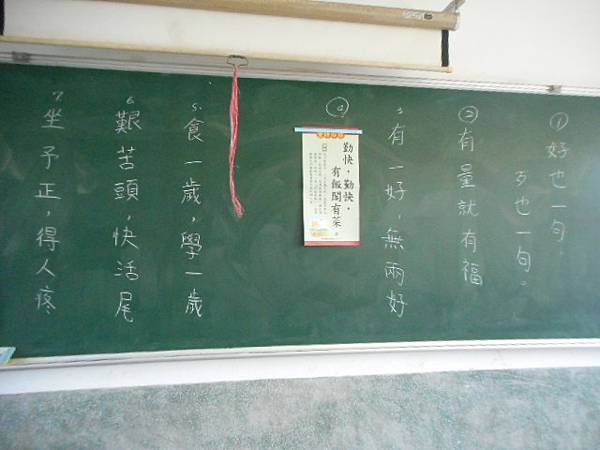 ①好也一句。
歹也一句。
②有量就有福
3.有一好,無兩好
④
勤快,勤快,
有飯閣有菜
5.食一歲,學一歲
6.艱苦頭,快活尾
7.坐予正,得人疼